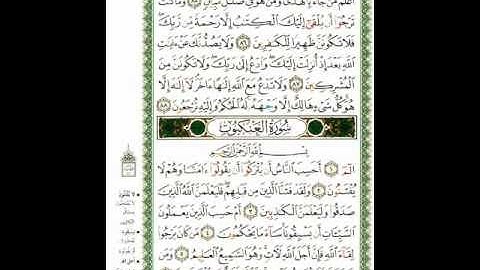 أَعْلَمُ مَن جَآءَ بِٱلْهُدَىٰ وَمَنْ هُوَ فِى ضَلَٰلٍ مُّبِينٍ ٨٥ وَمَا كُنتَ
تَرْجُوٓا۟ أَن يُلْقَىٰٓ إِلَيْكَ ٱلْكِتَٰبُ إِلَّا رَحْمَةً مِّن رَّبِّكَ
فَلَا تَكُونَنَّ ظَهِيرًا لِّلْكَٰفِرِينَ ٨٦ وَلَا يَصُدُّنَّكَ عَنْ ءَايَٰتِ
ٱللَّهِ بَعْدَ إِذْ أُنزِلَتْ إِلَيْكَ وَٱدْعُ إِلَىٰ رَبِّكَ وَلَا تَكُونَنَّ مِنَ
ٱلْمُشْرِكِينَ ٨٧ وَلَا تَدْعُ مَعَ ٱللَّهِ إِلَٰهًا ءَاخَرَ لَآ إِلَٰهَ إِلَّا
هُوَ كُلُّ شَىْءٍ هَالِكٌ إِلَّا وَجْهَهُۥ لَهُ ٱلْحُكْمُ وَإِلَيْهِ تُرْجَعُونَ ٨٨
سُورَةُ الْعَنْكَبُوت
بِسْمِ ٱللَّهِ ٱلرَّحْمَٰنِ ٱلرَّحِيمِ
الٓمٓ ١ أَحَسِبَ ٱلنَّاسُ أَن يُتْرَكُوٓا۟ أَن يَقُولُوٓا۟ ءَامَنَّا وَهُمْ لَا
يُفْتَنُونَ ٢ وَلَقَدْ فَتَنَّا ٱلَّذِينَ مِن قَبْلِهِمْ فَلَيَعْلَمَنَّ ٱللَّهُ ٱلَّذِينَ
صَدَقُوا۟ وَلَيَعْلَمَنَّ ٱلْكَٰذِبِينَ ٣ أَمْ حَسِبَ ٱلَّذِينَ يَعْمَلُونَ
ٱلسَّيِّـَٔاتِ أَن يَسْبِقُونَا سَآءَ مَا يَحْكُمُونَ ٤ مَن كَانَ يَرْجُوا۟
لِقَآءَ ٱللَّهِ فَإِنَّ أَجَلَ ٱللَّهِ لَءَاتٍ وَهُوَ ٱلسَّمِيعُ ٱلْعَلِيمُ ٥ وَمَن